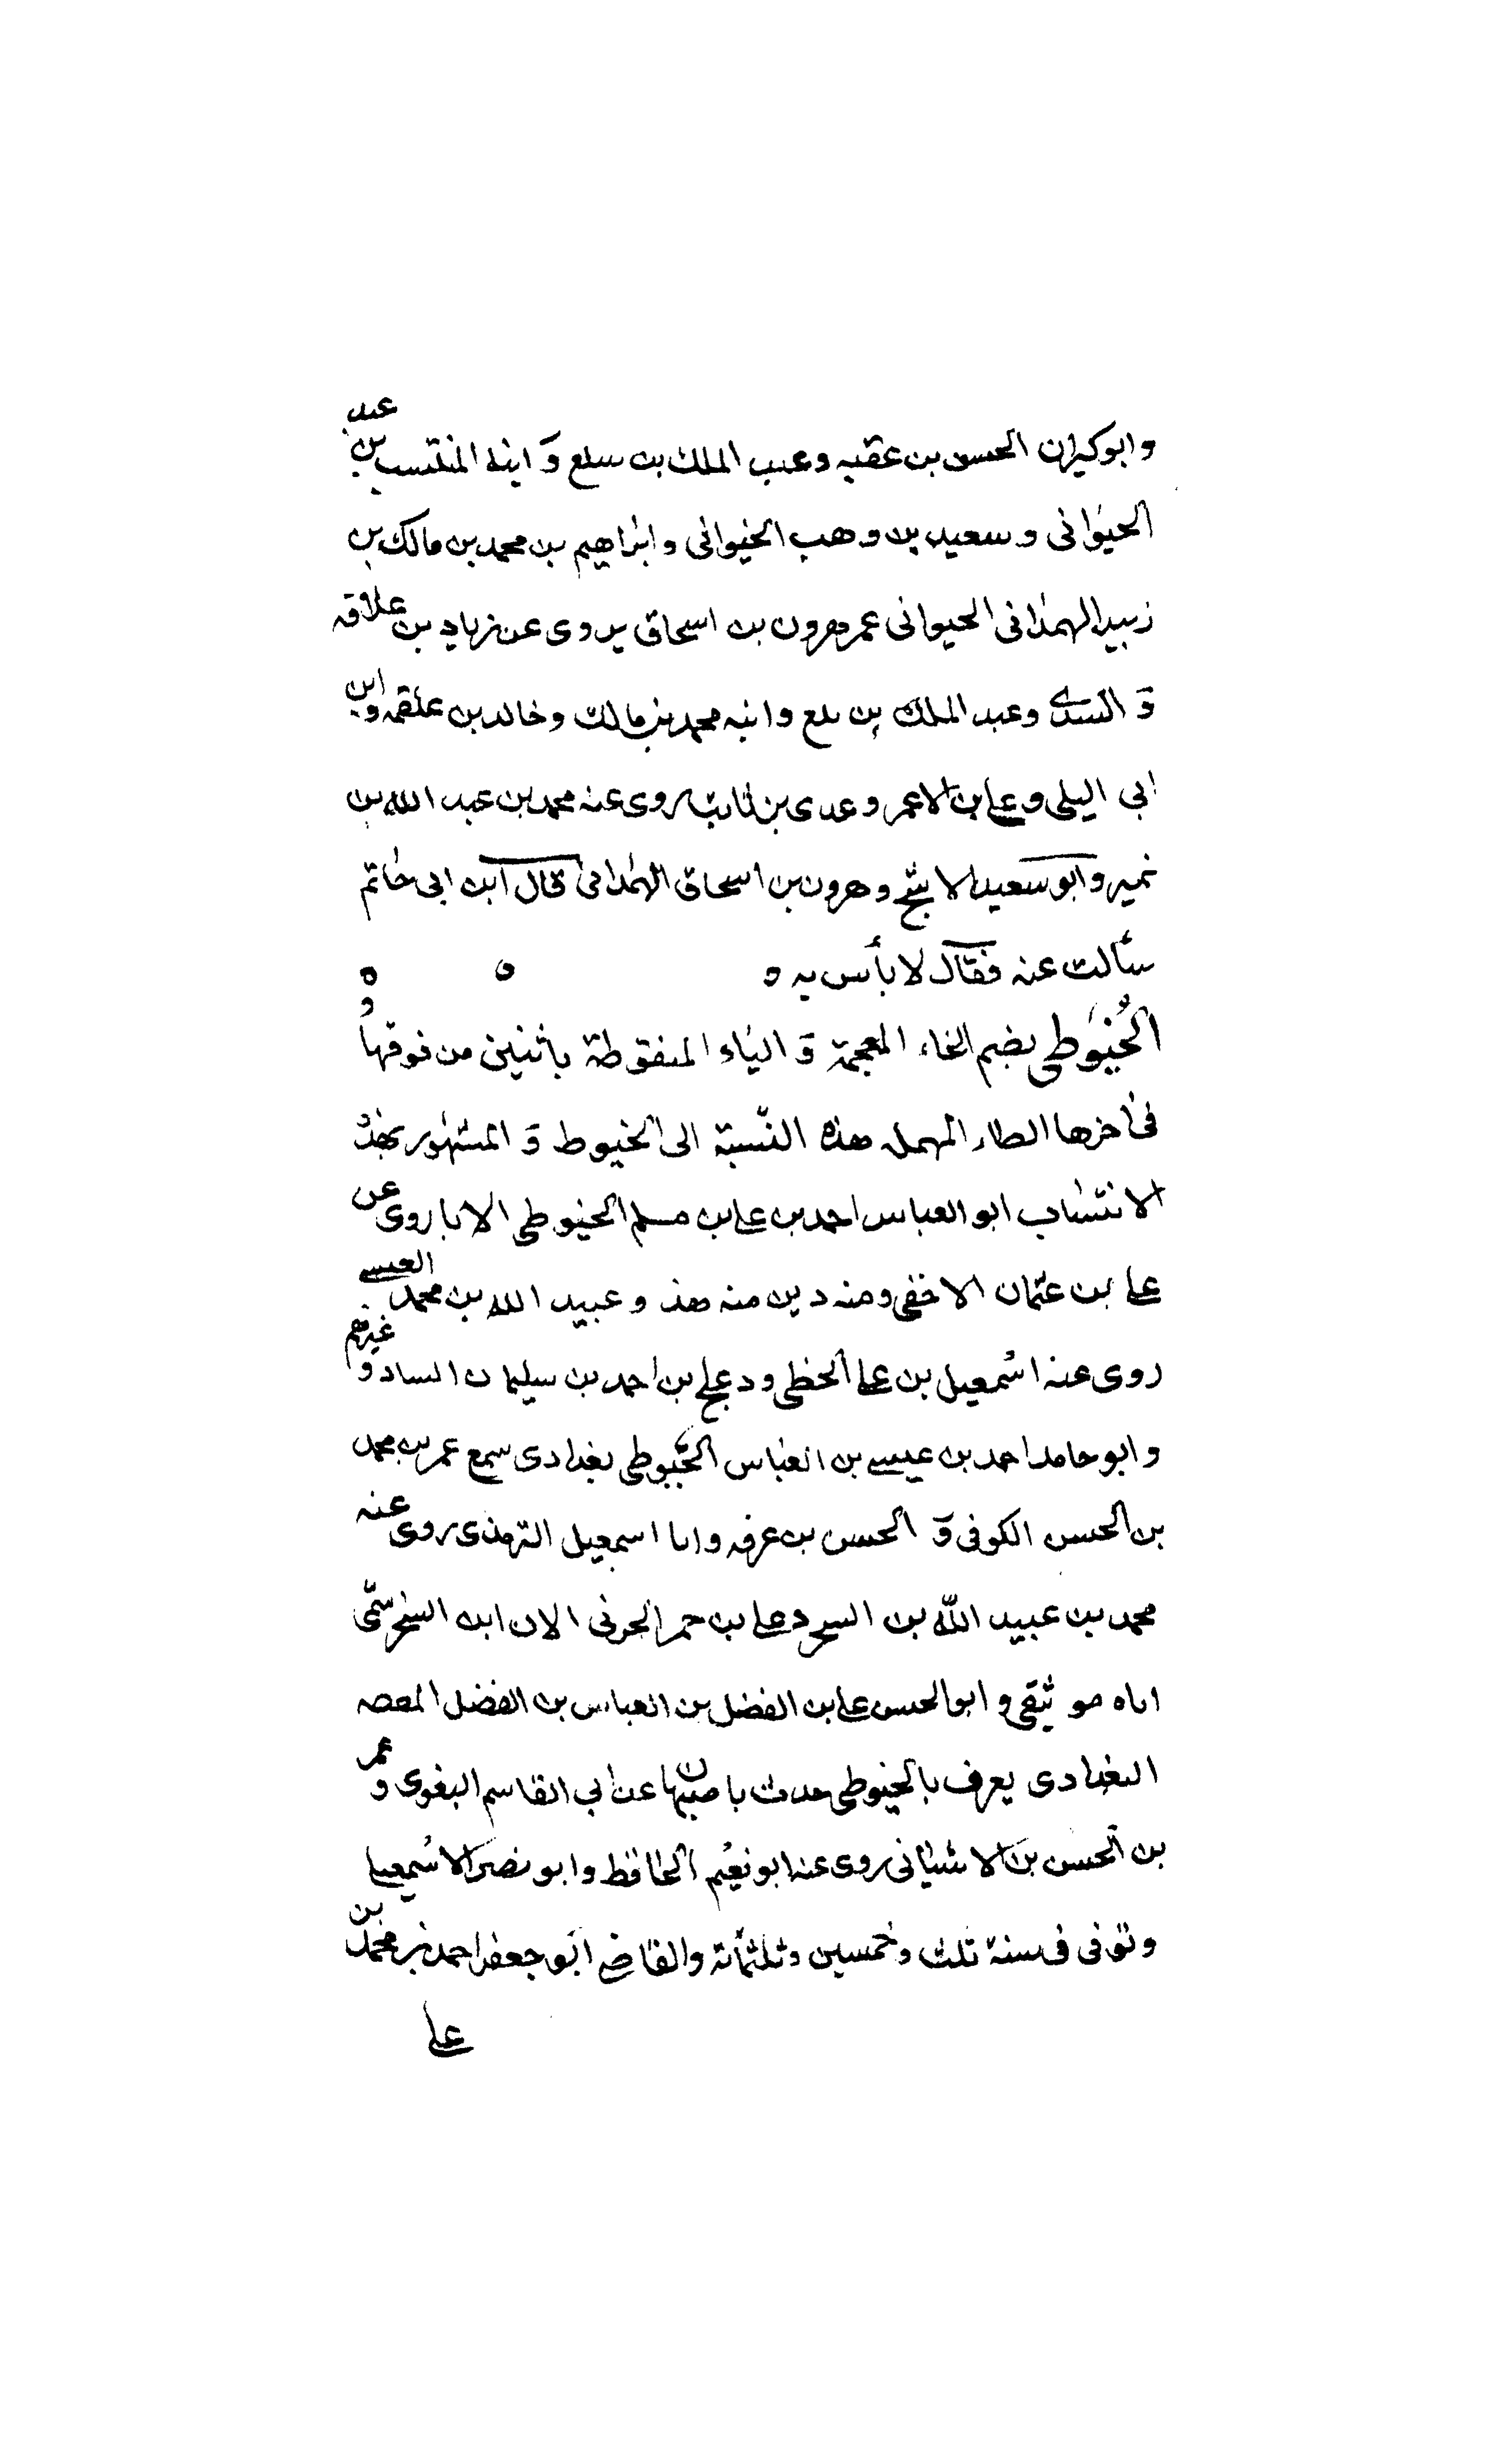 وابو كيران الحسن بن عقبه وعبد الملك بن سلع و ابنه المنتسب بن عبد
الخيواني و سعيد بن وهب الخيواني وابراهيم بن محمد بن مالك بن
زبيد الهمداني الخيواني عم هرون بن اسحاق يروي عن زياد بن علاقه
و السدي وعبد الملك بن سلع وابنه محمد بن مالك وخالد بن علقمه وابن
ابي اليلى وعلى بن الاعمر وعدي بن ثابت روى عنه محمد بن عبد الله بن
نمير وابو سعيد الاشج وهرون بن اسحاق الهمداني قال ابن ابي حاتم
سألت عنه فقال لا بأس به
الخيوطي بضم الخاء المعجمة و الياء المنقوطة باثنين من فوقها و
في اخرها الطاء المهمله هذه النسبة الى الخيوط و المشهور بهذ
الانتساب ابو العباس احمد بن على بن مسلم الخيوطي الابار روى عن
على بن عثمان اللاحقي ومنه دين منه هذ و عبيد الله بن محمد العيسى
روى عنه اسمعيل بن على الخطي ودعلج بن احمد بن سليمان وغيرهم
وابو حامد احمد بن عيسى بن العباس الخيوطي بغدادي سمع عمر بن محمد
بن الحسن الكوفي و الحسن بن عرفه وابا اسمعيل الترمذي روى عنه
محمد بن عبيد الله بن وعلى بن عمر الحربي الا ان ابن سمى
اباه موثقي و ابو الحسن على بن الفضل بن العباس بن الفضل
البغدادي يعرف بالخيوطي حدث باصبهان عن ابي القاسم البغوي وعمر
بن الحسن بن الاشناني روى عنه ابو نعيم الحافظ وابو نصر الاسمعيلى
وتوفي في سنة ثلث وخمسين وثلثمائة والقاضي ابو جعفر احمد بن محمد بن
على